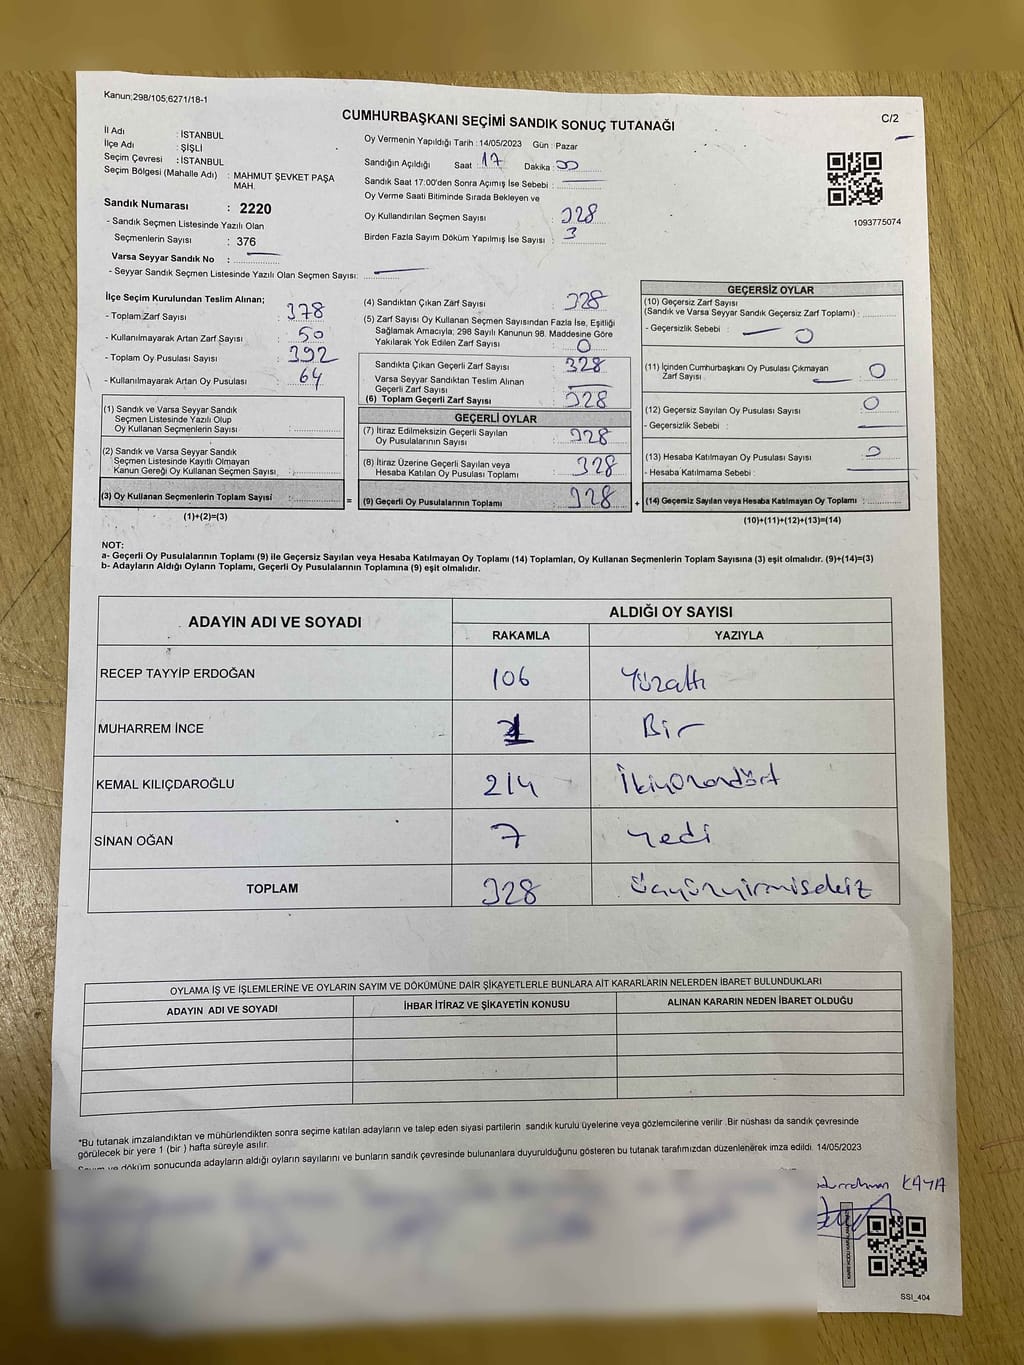 Kanun;298/105;6271/18-1
CUMHURBAŞKANI SEÇİMİ SANDIK SONUÇ TUTANAĞI
C/2
İl Adı : İSTANBUL
İlçe Adı : ŞİŞLİ
Seçim Çevresi : İSTANBUL
Seçim Bölgesi (Mahalle Adı) : MAHMUT ŞEVKET PAŞA
MAH.
Sandık Numarası : 2220
- Sandık Seçmen Listesinde Yazılı Olan
Seçmenlerin Sayısı : 376
Varsa Seyyar Sandık No :
- Seyyar Sandık Seçmen Listesinde Yazılı Olan Seçmen Sayısı:
Oy Vermenin Yapıldığı Tarih : 14/05/2023 Gün : Pazar
Sandığın Açıldığı Saat : 17 Dakika : 00
Sandık Saat 17:00'den Sonra Açımış İse Sebebi :
Oy Verme Saati Bitiminde Sırada Bekleyen ve
Oy Kullandırılan Seçmen Sayısı : 328
Birden Fazla Sayım Döküm Yapılmış İse Sayısı : 3
1093775074
İlçe Seçim Kurulundan Teslim Alınan;
- Toplam Zarf Sayısı : 378
- Kullanılmayarak Artan Zarf Sayısı : 50
- Toplam Oy Pusulası Sayısı : 392
- Kullanılmayarak Artan Oy Pusulası : 64
(1) Sandık ve Varsa Seyyar Sandık
Seçmen Listesinde Yazılı Olup
Oy Kullanan Seçmenlerin Sayısı :
(2) Sandık ve Varsa Seyyar Sandık
Seçmen Listesinde Kayıtlı Olmayan
Kanun Gereği Oy Kullanan Seçmen Sayısı :
(3) Oy Kullanan Seçmenlerin Toplam Sayısı :
(1)+(2)=(3)
(4) Sandıktan Çıkan Zarf Sayısı : 328
(5) Zarf Sayısı Oy Kullanan Seçmen Sayısından Fazla İse, Eşitliği
Sağlamak Amacıyla; 298 Sayılı Kanunun 98. Maddesine Göre
Yakılarak Yok Edilen Zarf Sayısı : 0
Sandıkta Çıkan Geçerli Zarf Sayısı : 328
Varsa Seyyar Sandıktan Teslim Alınan
Geçerli Zarf Sayısı :
(6) Toplam Geçerli Zarf Sayısı : 328
GEÇERLİ OYLAR
(7) İtiraz Edilmeksizin Geçerli Sayılan
Oy Pusulalarının Sayısı : 328
(8) İtiraz Üzerine Geçerli Sayılan veya
Hesaba Katılan Oy Pusulası Toplamı : 328
= (9) Geçerli Oy Pusulalarının Toplamı : 328 +
GEÇERSİZ OYLAR
(10) Geçersiz Zarf Sayısı
(Sandık ve Varsa Seyyar Sandık Geçersiz Zarf Toplamı) :
- Geçersizlik Sebebi : 0
(11) İçinden Cumhurbaşkanı Oy Pusulası Çıkmayan
Zarf Sayısı : 0
(12) Geçersiz Sayılan Oy Pusulası Sayısı : 0
- Geçersizlik Sebebi :
(13) Hesaba Katılmayan Oy Pusulası Sayısı : 0
- Hesaba Katılmama Sebebi :
(14) Geçersiz Sayılan veya Hesaba Katılmayan Oy Toplamı :
(10)+(11)+(12)+(13)=(14)
NOT:
a- Geçerli Oy Pusulalarının Toplamı (9) ile Geçersiz Sayılan veya Hesaba Katılmayan Oy Toplamı (14) Toplamları, Oy Kullanan Seçmenlerin Toplam Sayısına (3) eşit olmalıdır. (9)+(14)=(3)
b- Adayların Aldığı Oyların Toplamı, Geçerli Oy Pusulalarının Toplamına (9) eşit olmalıdır.
ADAYIN ADI VE SOYADI ALDIĞI OY SAYISI
RAKAMLA YAZIYLA
RECEP TAYYİP ERDOĞAN 106 Yüzaltı
MUHARREM İNCE 1 Bir
KEMAL KILIÇDAROĞLU 214 İkiyüzondört
SİNAN OĞAN 7 Yedi
TOPLAM 328 Üçyüzyirmisekiz
OYLAMA İŞ VE İŞLEMLERİNE VE OYLARIN SAYIM VE DÖKÜMÜNE DAİR ŞİKAYETLERLE BUNLARA AİT KARARLARIN NELERDEN İBARET BULUNDUKLARI
ADAYIN ADI VE SOYADI İHBAR İTİRAZ VE ŞİKAYETİN KONUSU ALINAN KARARIN NEDEN İBARET OLDUĞU
*Bu tutanak imzalandıktan ve mühürlendikten sonra seçime katılan adayların ve talep eden siyasi partilerin sandık kurulu üyelerine veya gözlemcilerine verilir. Bir nüshası da sandık çevresinde
görülecek bir yere 1 (bir) hafta süreyle asılır.
Sayım ve döküm sonucunda adayların aldığı oyların sayılarını ve bunların sandık çevresinde bulunanlara duyurulduğunu gösteren bu tutanak tarafımızdan düzenlenerek imza edildi. 14/05/2023
KAYA
SSI_404